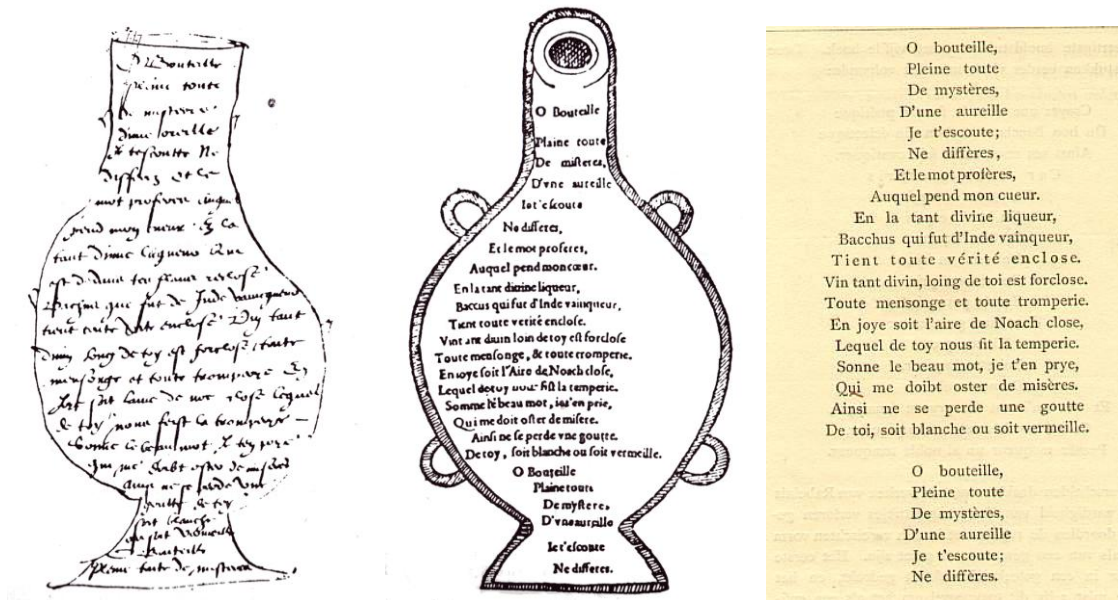 O Bouteille
pleine toute
de misterre
d'une oreille
Je tescoutte Ne
differez et le
mot profere
pend mon cueur En la
tant divine liqueur Que
est dedans reclose
que fut de Inde vaincqueur
tient toute verite enclose Vin tant
divin loing de toy est forclose toute
mensonge et toute tromperie En
soit de noe close lequel
de toy nous feist la
Sonne le beau mot Je
Qui me doibt oster de misere
Ainsi ne se perde une
goutte de toy
soit blanche
ou soit vermeille
O Bouteille
pleine toute de misterre
O Bouteille
Plaine toute
De misteres,
D'vne aureille
Iet'escoute
Ne differes,
Et le mot proferes,
Auquel pend mon cœur.
En la tant diuine liqueur,
Baccus qui fut d'Inde vainqueur,
Tient toute verité enclose.
Vint ant diuin loin de toy est forclose
Toute mensonge, & toute tromperie.
En ioye soit l'Aire de Noach close,
Lequel de toy nous fist la temperie.
Somme le beau mot, ie t'en prie,
Qui me doit oster de misere.
Ainsi ne se perde vne goutte.
De toy, soit blanche ou soit vermeille.
O Bouteille
Plaine toute
De mysteres,
D'vne aureille
Iet'escoute
Ne differes.
O bouteille,
Pleine toute
De mystères,
D'une aureille
Je t'escoute;
Ne diffères,
Et le mot profères,
Auquel pend mon cueur.
En la tant divine liqueur,
Bacchus qui fut d'Inde vainqueur,
Tient toute vérité enclose.
Vin tant divin, loing de toi est forclose.
Toute mensonge et toute tromperie.
En joye soit l'aire de Noach close,
Lequel de toy nous fit la temperie.
Sonne le beau mot, je t'en prye,
Qui me doibt oster de misères.
Ainsi ne se perde une goutte
De toi, soit blanche ou soit vermeille.
O bouteille,
Pleine toute
De mystères,
D'une aureille
Je t'escoute;
Ne diffères.